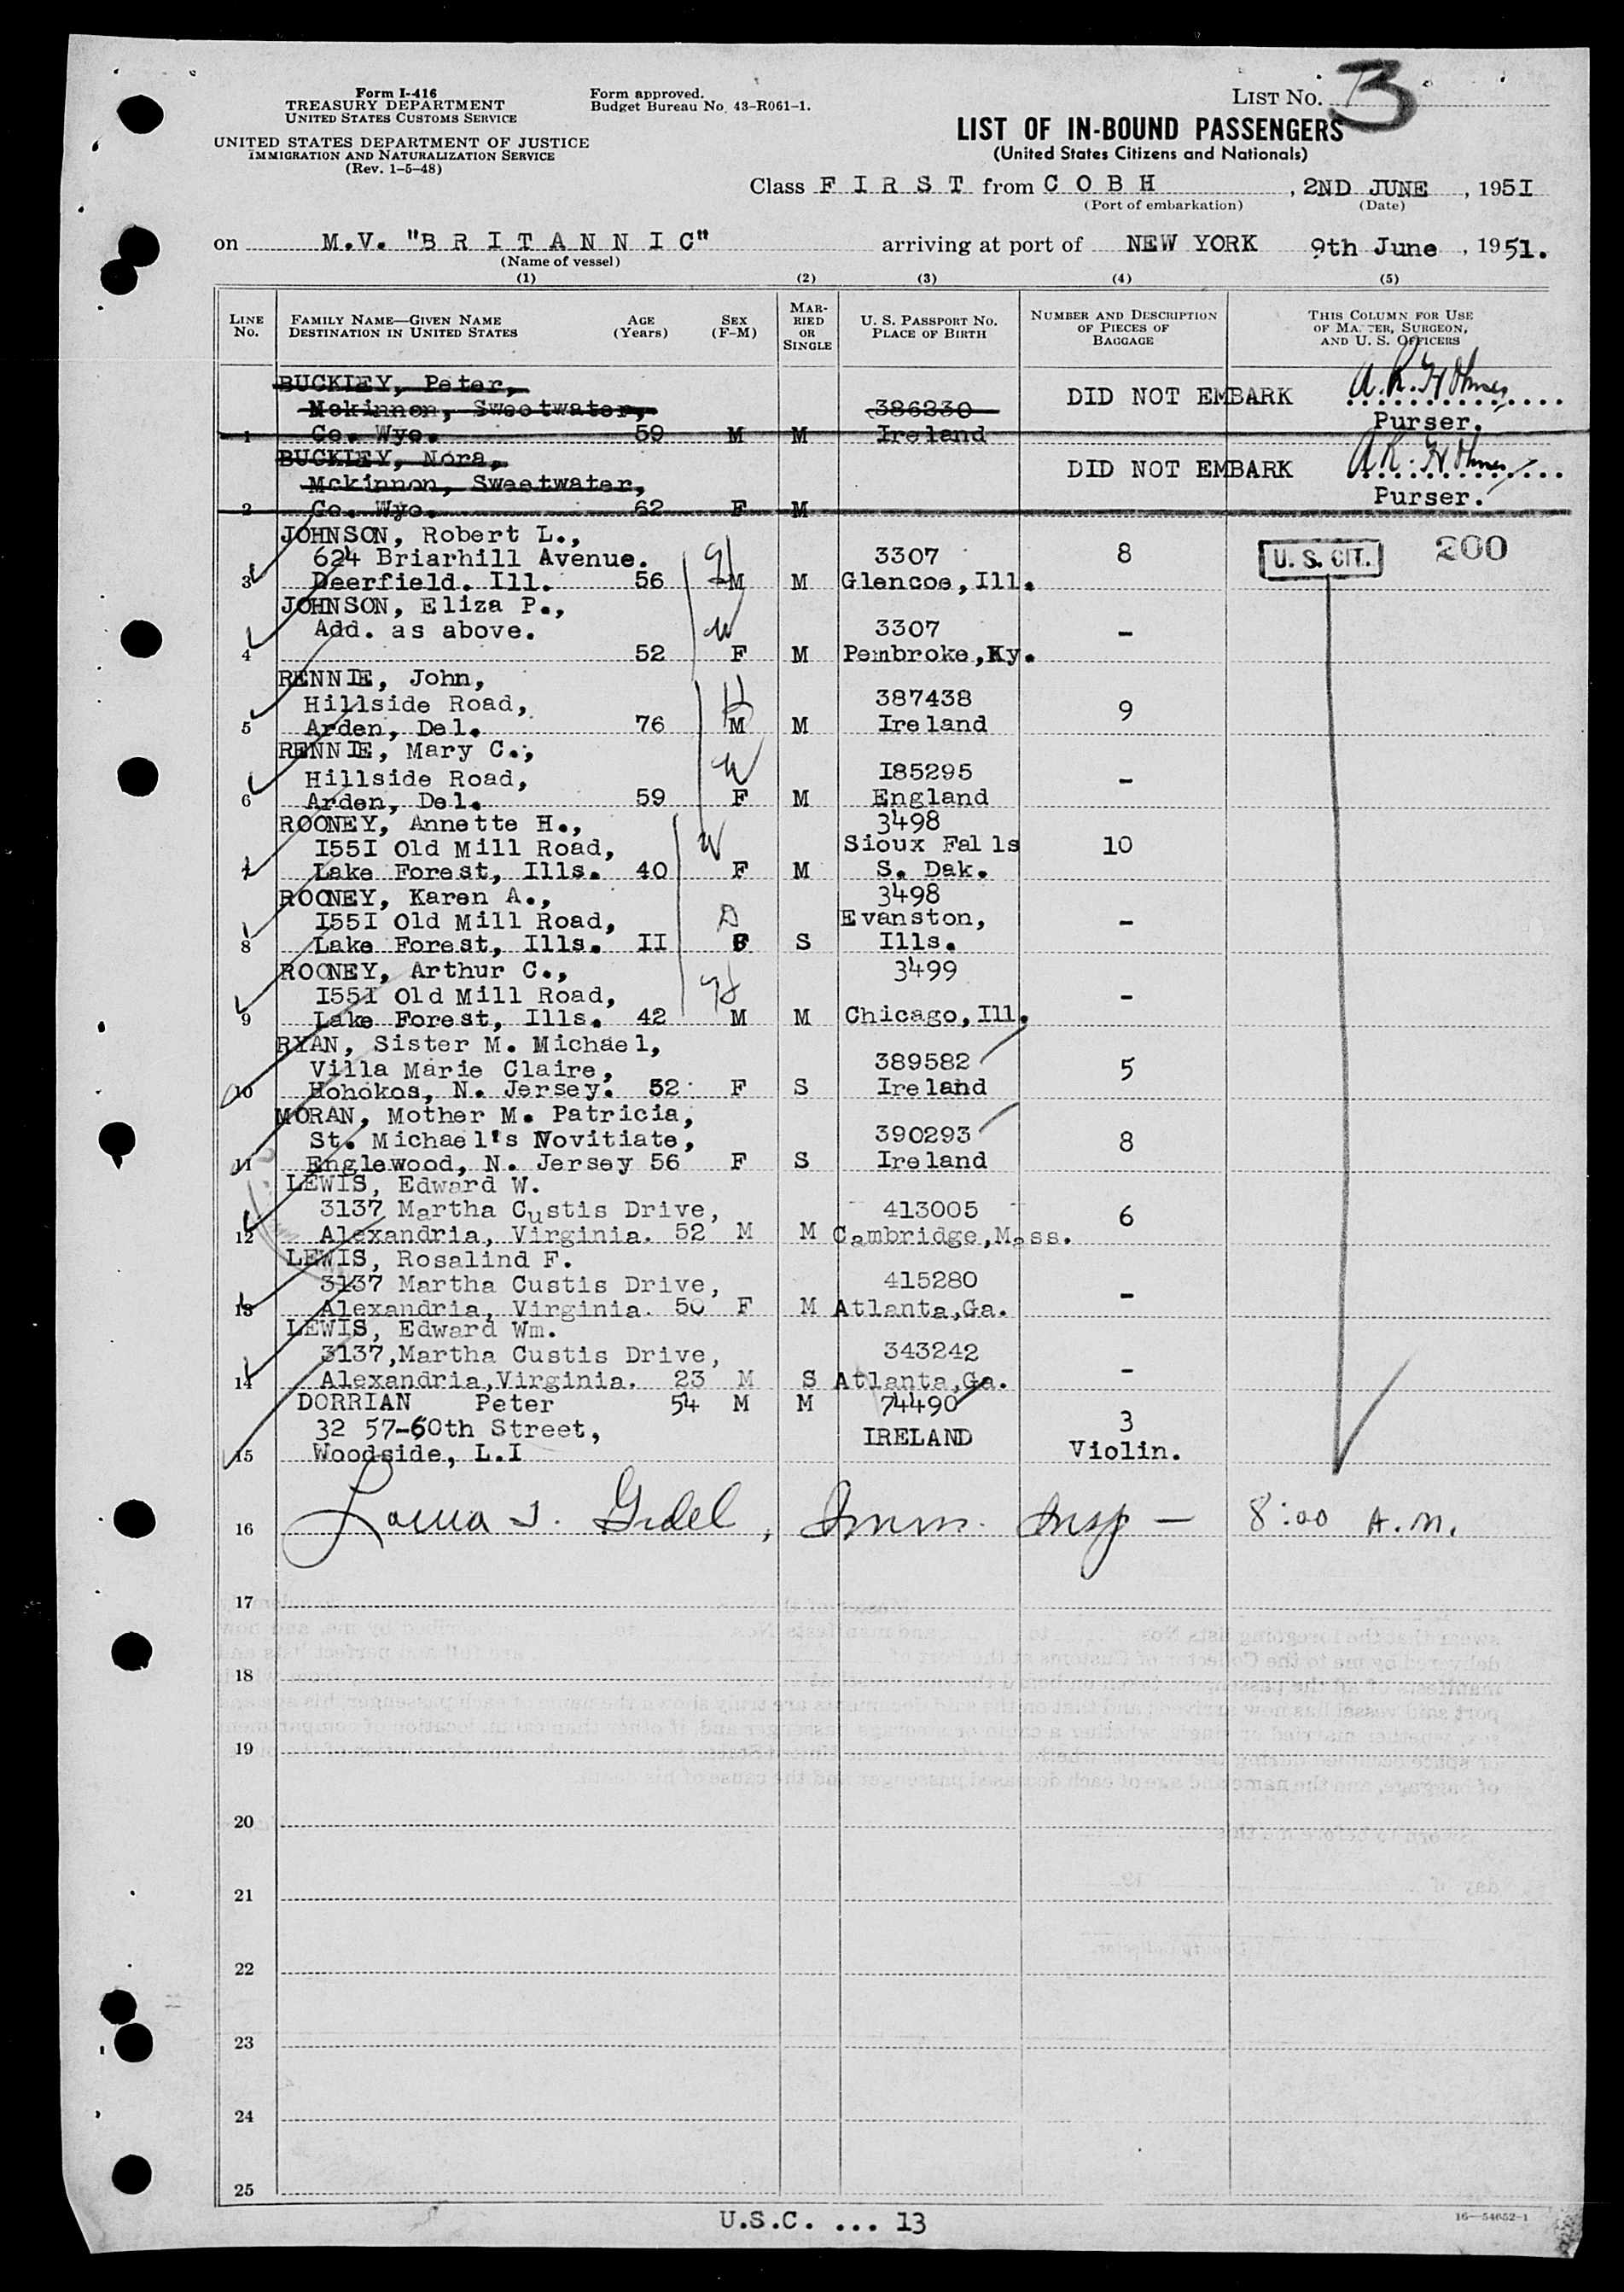 Form I-416
TREASURY DEPARTMENT
UNITED STATES CUSTOMS SERVICE
UNITED STATES DEPARTMENT OF JUSTICE
IMMIGRATION AND NATURALIZATION SERVICE
(Rev. 1-5-48)
Form approved.
Budget Bureau No. 43-R061-1.
LIST No. 3
LIST OF IN-BOUND PASSENGERS
(United States Citizens and Nationals)
Class F I R S T from C O B H, 2ND JUNE, 195I
(Port of embarkation) (Date)
on M.V. "B R I T A N N I C" arriving at port of NEW YORK 9th June, 1951.
(Name of vessel)
(1) (2) (3) (4) (5)
LINE No. FAMILY NAME—GIVEN NAME DESTINATION IN UNITED STATES AGE (Years) SEX (F-M) MARRIED OR SINGLE U. S. PASSPORT NO. PLACE OF BIRTH NUMBER AND DESCRIPTION OF PIECES OF BAGGAGE THIS COLUMN FOR USE OF MASTER, SURGEON, AND U. S. OFFICERS
BUCKLEY, Peter,
Mckinnon, Sweetwater, 386230 DID NOT EMBARK
1 Co. Wyo. 59 M M Ireland Purser.
BUCKLEY, Nora, DID NOT EMBARK
Mckinnon, Sweetwater, Purser.
2 Co. Wyo. 62 F M
JOHNSON, Robert L.,
624 Briarhill Avenue. 3307 8 U. S. CIT. 200
3 Deerfield. Ill. 56 M M Glencoe, Ill.
JOHNSON, Eliza P.,
Add. as above. 3307 -
4 52 F M Pembroke, Ky.
RENNIE, John,
Hillside Road, 387438 9
5 Arden, Del. 76 H M M Ireland
RENNIE, Mary C.,
Hillside Road, W I85295 -
6 Arden, Del. 59 F M England
ROONEY, Annette H., 3498
I55I Old Mill Road, W Sioux Falls 10
7 Lake Forest, Ills. 40 F M S. Dak.
ROONEY, Karen A., 3498
I55I Old Mill Road, D Evanston, -
8 Lake Forest, Ills. II F S Ills.
ROONEY, Arthur C., 3499
I55I Old Mill Road, -
9 Lake Forest, Ills. 42 M M Chicago, Ill.
RYAN, Sister M. Michael,
Villa Marie Claire, 389582 5
10 Hohokos, N. Jersey. 52 F S Ireland
MORAN, Mother M. Patricia,
St. Michael's Novitiate, 390293 8
11 Englewood, N. Jersey 56 F S Ireland
LEWIS, Edward W.
3137 Martha Custis Drive, 413005 6
12 Alexandria, Virginia. 52 M M Cambridge, Mass.
LEWIS, Rosalind F.
3137 Martha Custis Drive, 415280 -
13 Alexandria, Virginia. 50 F M Atlanta, Ga.
LEWIS, Edward Wm.
3137, Martha Custis Drive, 343242 -
14 Alexandria, Virginia. 23 M S Atlanta, Ga.
DORRIAN Peter 54 M M 74490
32 57-60th Street, IRELAND 3
15 Woodside, L.I Violin.
16 Imm. Insp - 8:00 A.M.
17
18
19
20
21
22
23
24
25
U.S.C. ... 13
16—54652-1